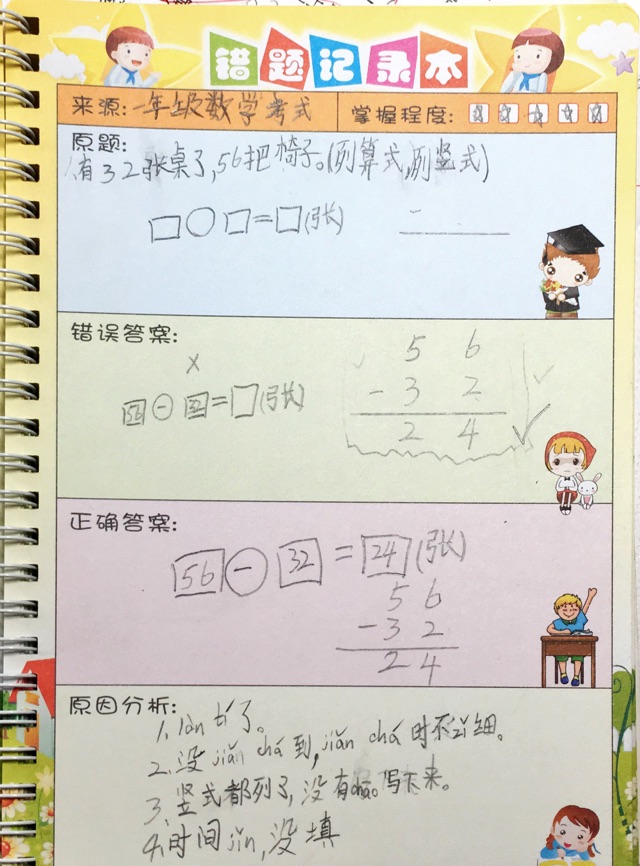 错题记录本
来源:一年级数学考式
掌握程度:
原题:
1.有32张桌子,56把椅子。(列算式,列竖式)
□○□=□(张)
错误答案:
×
5 6
- 3 2
2 4
56-32=□(张)
正确答案:
56-32=24(张)
5 6
-3 2
2 4
原因分析:
1.làn tí了。
2.没jiǎn chá到,jiǎn chá时不zǐ细。
3.竖式都列了,没有chāo写下来。
4.时间jǐn,没填